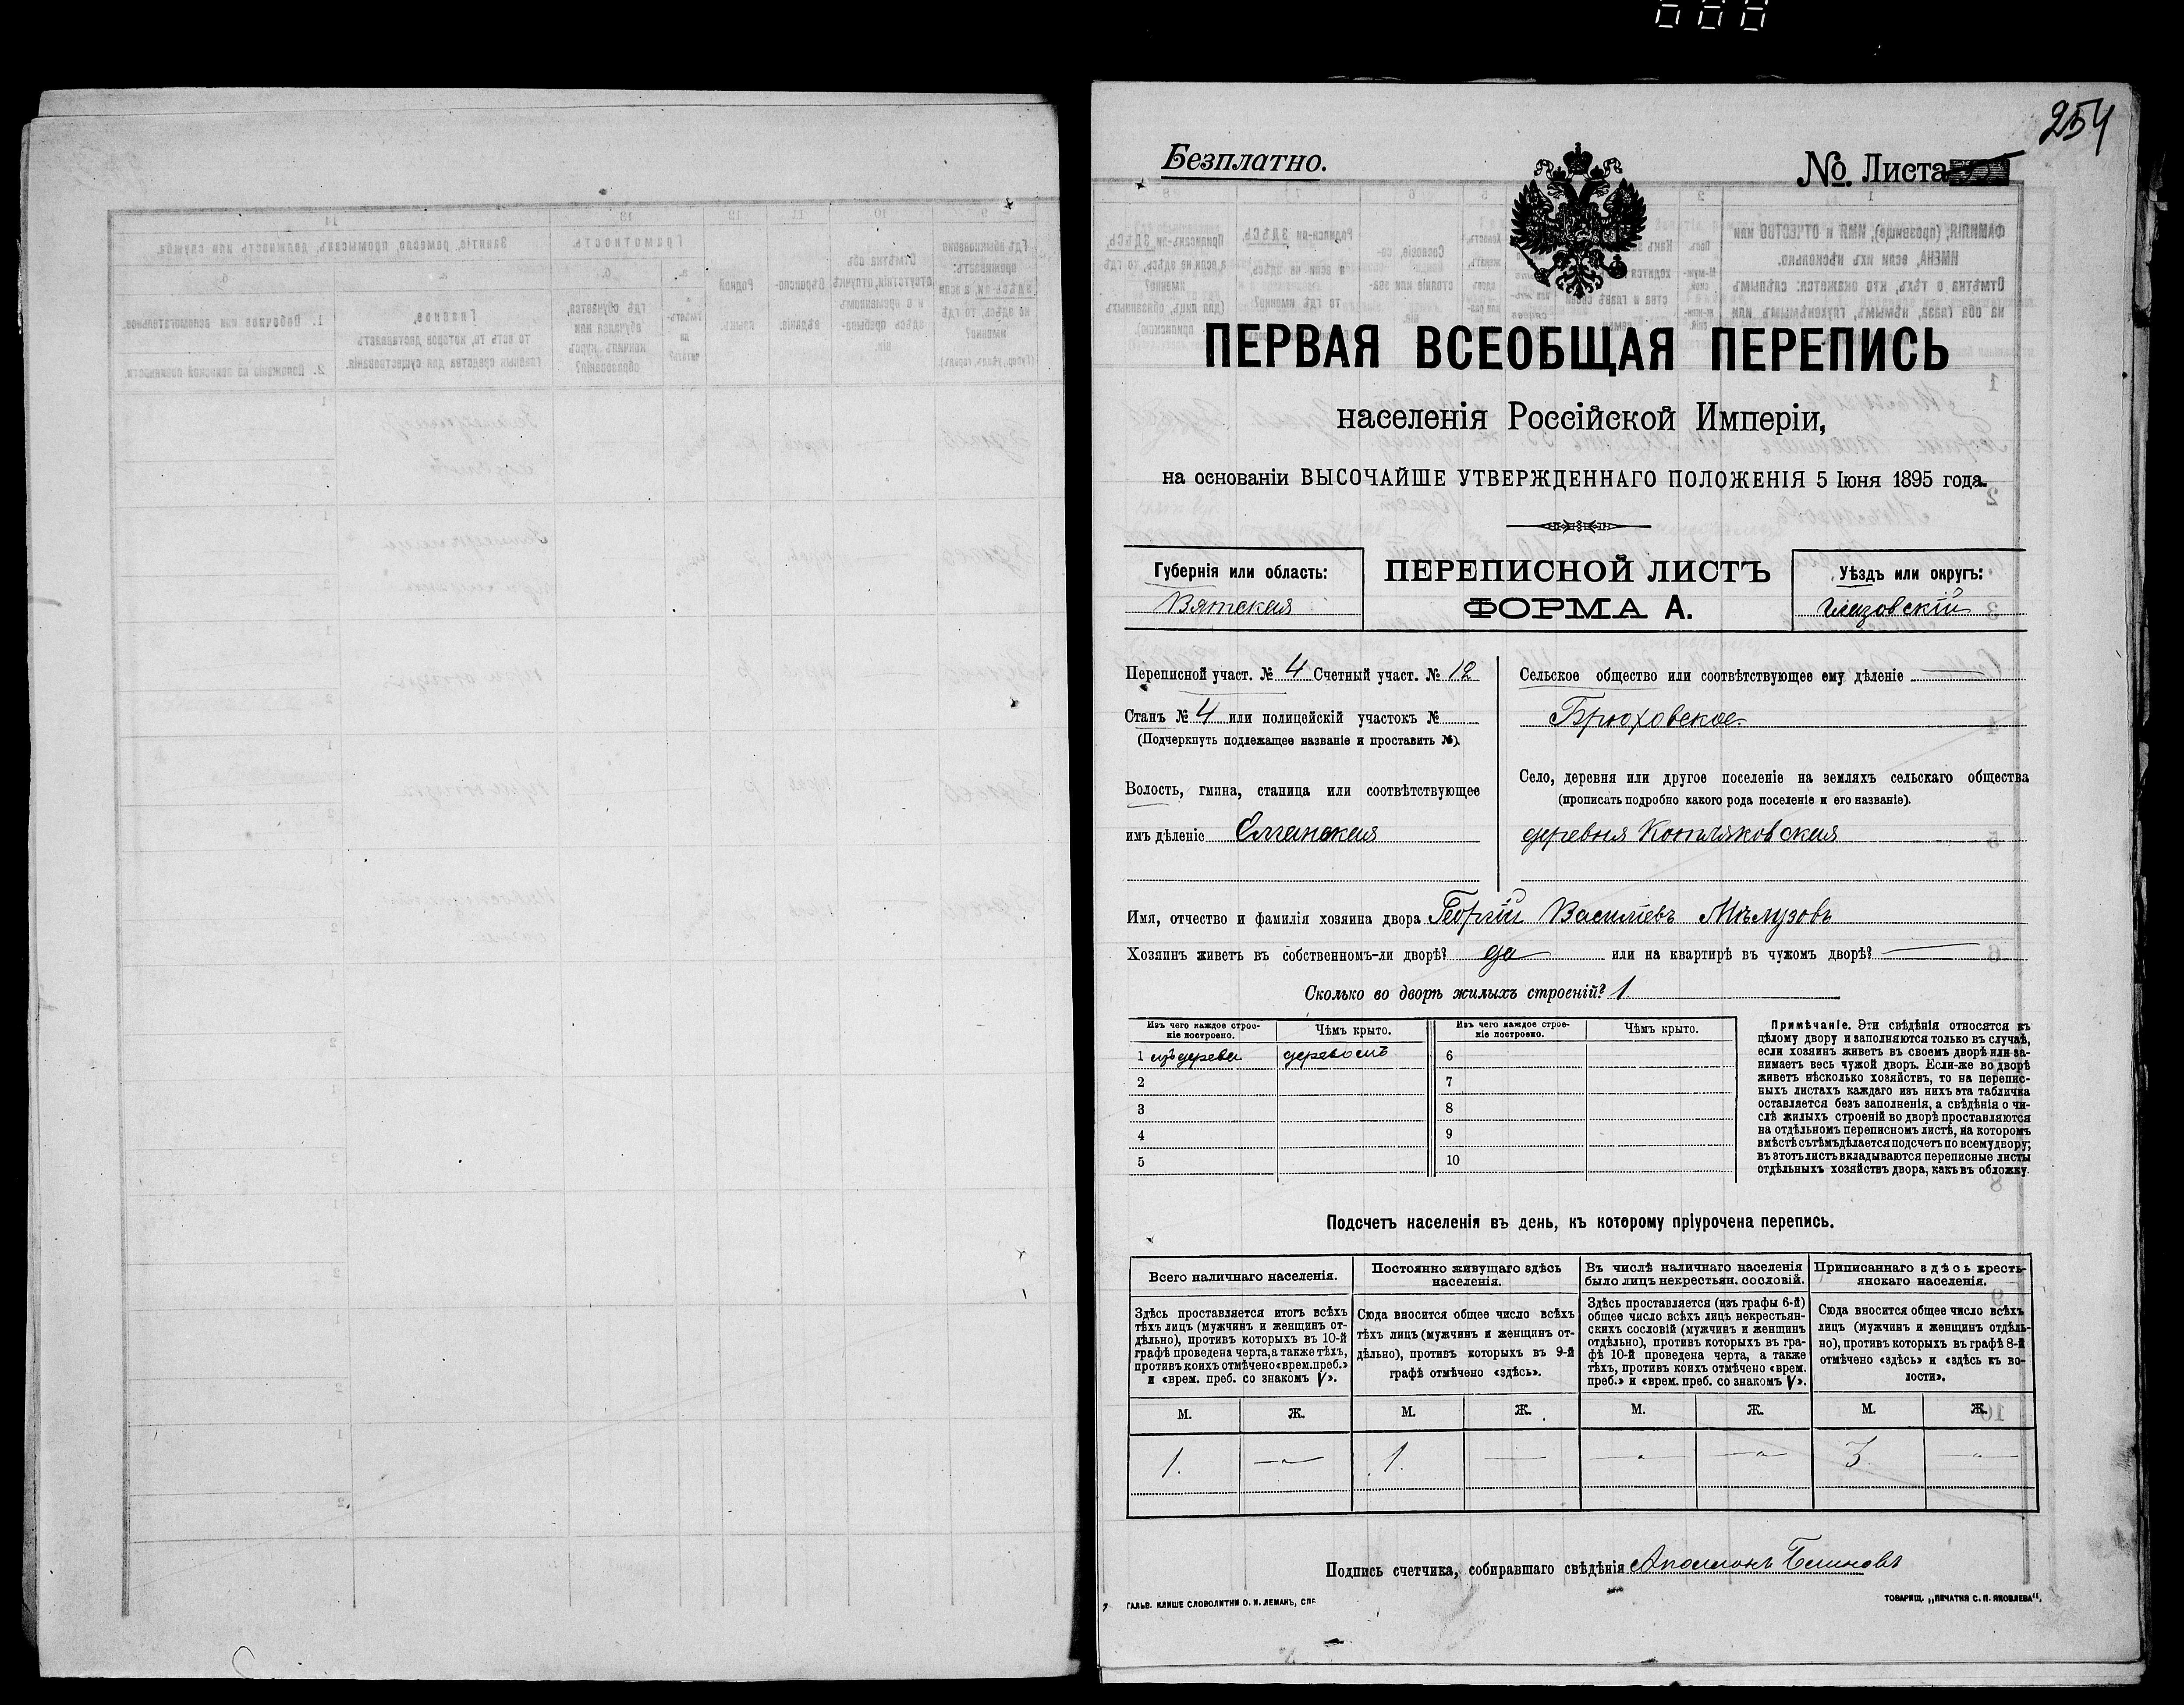 254
Безплатно.
№. Листа
ПЕРВАЯ ВСЕОБЩАЯ ПЕРЕПИСЬ
населенія Россійской Имперіи,
на основаніи ВЫСОЧАЙШЕ УТВЕРЖДЕННАГО ПОЛОЖЕНІЯ 5 Іюня 1895 года.
Губернія или область:
Вятская
ПЕРЕПИСНОЙ ЛИСТЪ
ФОРМА А.
Уѣздъ или округъ:
Глазовскій
Переписной участ. № 4 Счетный участ. № 12
Станъ № 4 или полицейскій участокъ №
(Подчеркнуть подлежащее названіе и проставить №).
Волость, гмина, станица или соотвѣтствующее
имъ дѣленіе Елганская
Сельское общество или соотвѣтствующее ему дѣленіе
Брюховское
Село, деревня или другое поселеніе на земляхъ сельскаго общества
(прописать подробно какого рода поселеніе и его названіе).
деревня
Имя, отчество и фамилія хозяина двора Георгій Василіевъ Мѣлузовъ
Хозяинъ живетъ въ собственномъ-ли дворѣ? да или на квартирѣ въ чужомъ дворѣ? —
Сколько во дворѣ жилыхъ строеній? 1.
Изъ чего каждое строе-
ніе построено.
Чѣмъ крыто.
1 изъ дерева деревомъ
2
3
4
5
Изъ чего каждое строе-
ніе построено.
Чѣмъ крыто.
6
7
8
9
10
Примѣчаніе. Эти свѣдѣнія относятся къ
цѣлому двору и заполняются только въ случаѣ,
если хозяинъ живетъ въ своемъ дворѣ или за-
нимаетъ весь чужой дворъ. Если-же во дворѣ
живетъ нѣсколько хозяйствъ, то на перепис-
ныхъ листахъ каждаго изъ нихъ эта табличка
оставляется безъ заполненія, а свѣдѣнія о чи-
слѣ жилыхъ строеній во дворѣ проставляются
на отдѣльномъ переписномъ листѣ, на которомъ
вмѣстѣ съ тѣмъ дѣлается подсчетъ по всему двору;
въ этотъ листъ вкладываются переписные листы
отдѣльныхъ хозяйствъ двора, какъ въ обложку.
Подсчетъ населенія въ день, къ которому пріурочена перепись.
Всего наличнаго населенія.
Здѣсь проставляется итогъ всѣхъ
тѣхъ лицъ (мужчинъ и женщинъ от-
дѣльно), противъ которыхъ въ 10-й
графѣ проведена черта, а также тѣхъ,
противъ коихъ отмѣчено «врем. преб.»
и «врем. преб. со знакомъ V».
Постоянно живущаго здѣсь
населенія.
Сюда вносится общее число всѣхъ
тѣхъ лицъ (мужчинъ и женщинъ от-
дѣльно), противъ которыхъ въ 9-й
графѣ отмѣчено «здѣсь».
Въ числѣ наличнаго населенія
было лицъ некрестьян. сословій.
Здѣсь проставляется (изъ графы 6-й)
общее число всѣхъ лицъ некрестьян-
скихъ сословій (мужчинъ и женщинъ
отдѣльно), противъ которыхъ въ гра-
фѣ 10-й проведена черта, а также
тѣхъ, противъ коихъ отмѣчено «врем.
преб.» и «врем. преб. со знакомъ V».
Приписаннаго здѣсь кресть-
янскаго населенія.
Сюда вносится общее число всѣхъ
лицъ (мужчинъ и женщинъ отдѣль-
но), противъ которыхъ въ графѣ 8-й
отмѣчено «здѣсь» и «здѣсь къ во-
лости».
М. Ж. М. Ж. М. Ж. М. Ж.
1. — 1. — — — 3 —
Подпись счетчика, собиравшаго свѣдѣнія Аполлонъ Блиновъ
ГАЛЬВ. КЛИШЕ СЛОВОЛИТНИ О. И. ЛЕМАНЪ, СПБ
ТОВАРИЩ. „ПЕЧАТНЯ С. П. ЯКОВЛЕВА“.